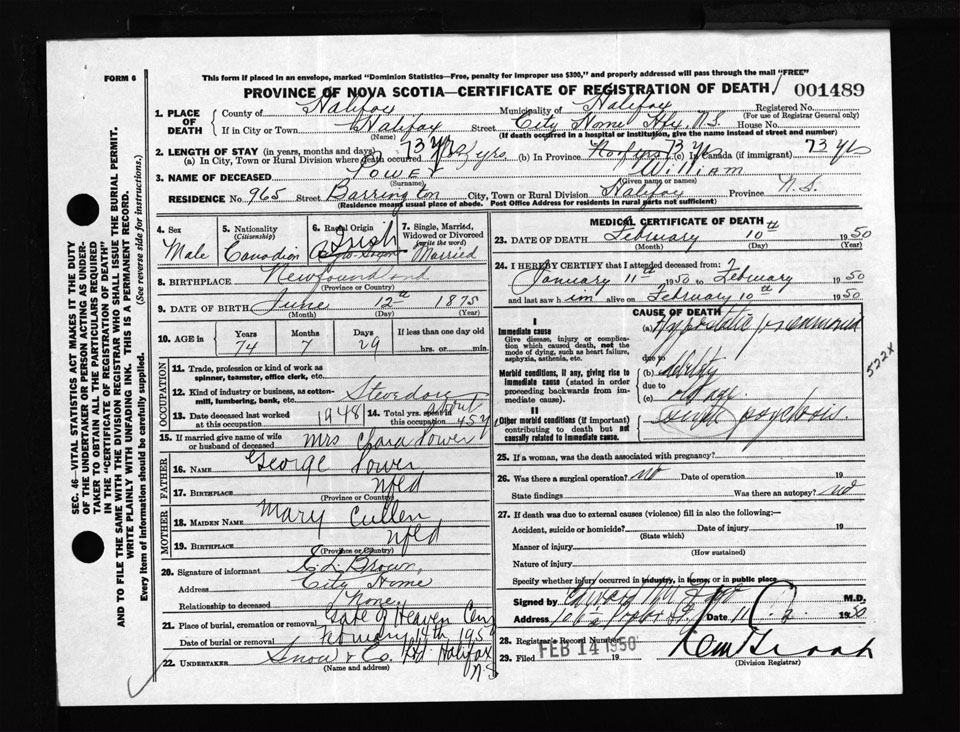 FORM 6
This form if placed in an envelope, marked "Dominion Statistics—Free, penalty for improper use $300," and properly addressed will pass through the mail "FREE"
PROVINCE OF NOVA SCOTIA—CERTIFICATE OF REGISTRATION OF DEATH 001489
1. PLACE OF DEATH
County of Halifax Municipality of Halifax Registered No.
(For use of Registrar General only)
If in City or Town Halifax Street City Home Hfx. N.S. House No.
(Name) (If death occurred in a hospital or institution, give the name instead of street and number)
2. LENGTH OF STAY (in years, months and days)
(a) In City, Town or Rural Division where death occurred 73 yrs (b) In Province 73 yrs (c) In Canada (if immigrant) 73 yrs
3. NAME OF DECEASED Power William
(Surname) (Given name or names)
RESIDENCE No. 965 Street Barrington City, Town or Rural Division Halifax Province N.S.
(Residence means usual place of abode. Post Office Address for residents in rural parts not sufficient)
4. Sex Male
5. Nationality (Citizenship) Canadian
6. Racial Origin Irish
7. Single, Married, Widowed or Divorced (write the word) Married
8. BIRTHPLACE Newfoundland
(Province or Country)
9. DATE OF BIRTH June 12th 1875
(Month) (Day) (Year)
10. AGE in Years Months Days If less than one day old
74 7 29 hrs. or min.
OCCUPATION
11. Trade, profession or kind of work as spinner, teamster, office clerk, etc.
12. Kind of industry or business, as cotton-mill, lumbering, bank, etc. Stevedore
13. Date deceased last worked at this occupation 1948 14. Total yrs. spent in this occupation about 45 y
15. If married give name of wife or husband of deceased Mrs Clara Power
FATHER
16. NAME George Power
17. BIRTHPLACE Nfld
(Province or Country)
MOTHER
18. MAIDEN NAME Mary Cullen
19. BIRTHPLACE Nfld
(Province or Country)
20. Signature of informant Brown,
Address City Home
Relationship to deceased None
21. Place of burial, cremation or removal Gate of Heaven Cem
Date of burial or removal February 14th 1950
22. UNDERTAKER Snow & Co. Ltd. Halifax N S
(Name and address)
MEDICAL CERTIFICATE OF DEATH
23. DATE OF DEATH February 10th 1950
(Month) (Day) (Year)
24. I HEREBY CERTIFY that I attended deceased from
January 11th 1950 to February 1950
and last saw him alive on February 10th 1950
CAUSE OF DEATH
I
Immediate cause
Give disease, injury or complication which caused death, not the mode of dying, such as heart failure, asphyxia, asthenia, etc.
(a) Hypostatic pneumonia
due to
Morbid conditions, if any, giving rise to immediate cause (stated in order proceeding backwards from immediate cause).
(b) debility
due to
(c) old age.
II
Other morbid conditions (if important) contributing to death but not causally related to immediate cause.
senile psychosis.
522X
25. If a woman, was the death associated with pregnancy?
26. Was there a surgical operation? no Date of operation 19
State findings Was there an autopsy? no
27. If death was due to external causes (violence) fill in also the following:—
Accident, suicide or homicide? Date of injury 19
(State which)
Manner of injury
(How sustained)
Nature of injury
Specify whether injury occurred in industry, in home, or in public place
Signed by M.D.
Address Date 11. 2. 1950
28. Registrar's Record Number
29. Filed FEB 14 1950 19
(Division Registrar)
SEC. 46—VITAL STATISTICS ACT MAKES IT THE DUTY
OF THE UNDERTAKER OR PERSON ACTING AS UNDER-
TAKER TO OBTAIN ALL THE PARTICULARS REQUIRED
IN THE "CERTIFICATE OF REGISTRATION OF DEATH"
AND TO FILE THE SAME WITH THE DIVISION REGISTRAR WHO SHALL ISSUE THE BURIAL PERMIT.
WRITE PLAINLY WITH UNFADING INK. THIS IS A PERMANENT RECORD.
Every item of information should be carefully supplied. (See reverse side for instructions.)